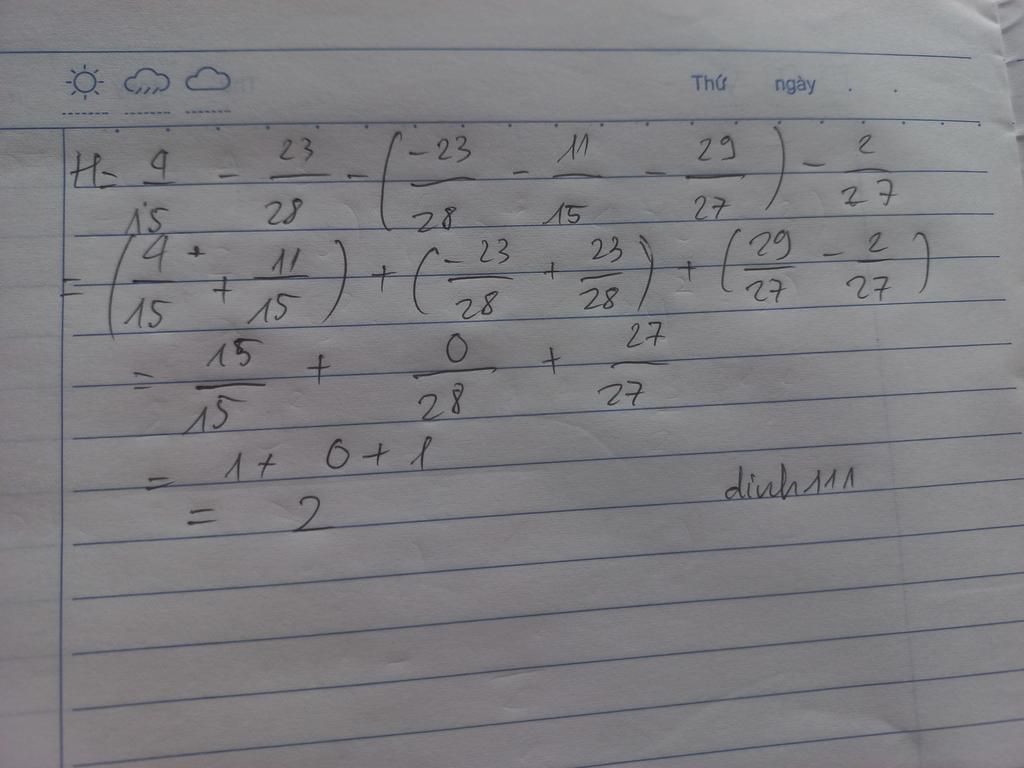 Thứ ngày . .
H = 4/15 - 23/28 - (-23/28 - 11/15 - 29/27) - 2/27
= (4/15 + 11/15) + (-23/28 + 23/28) + (29/27 - 2/27)
= 15/15 + 0/28 + 27/27
= 1 + 0 + 1
= 2
dinh111